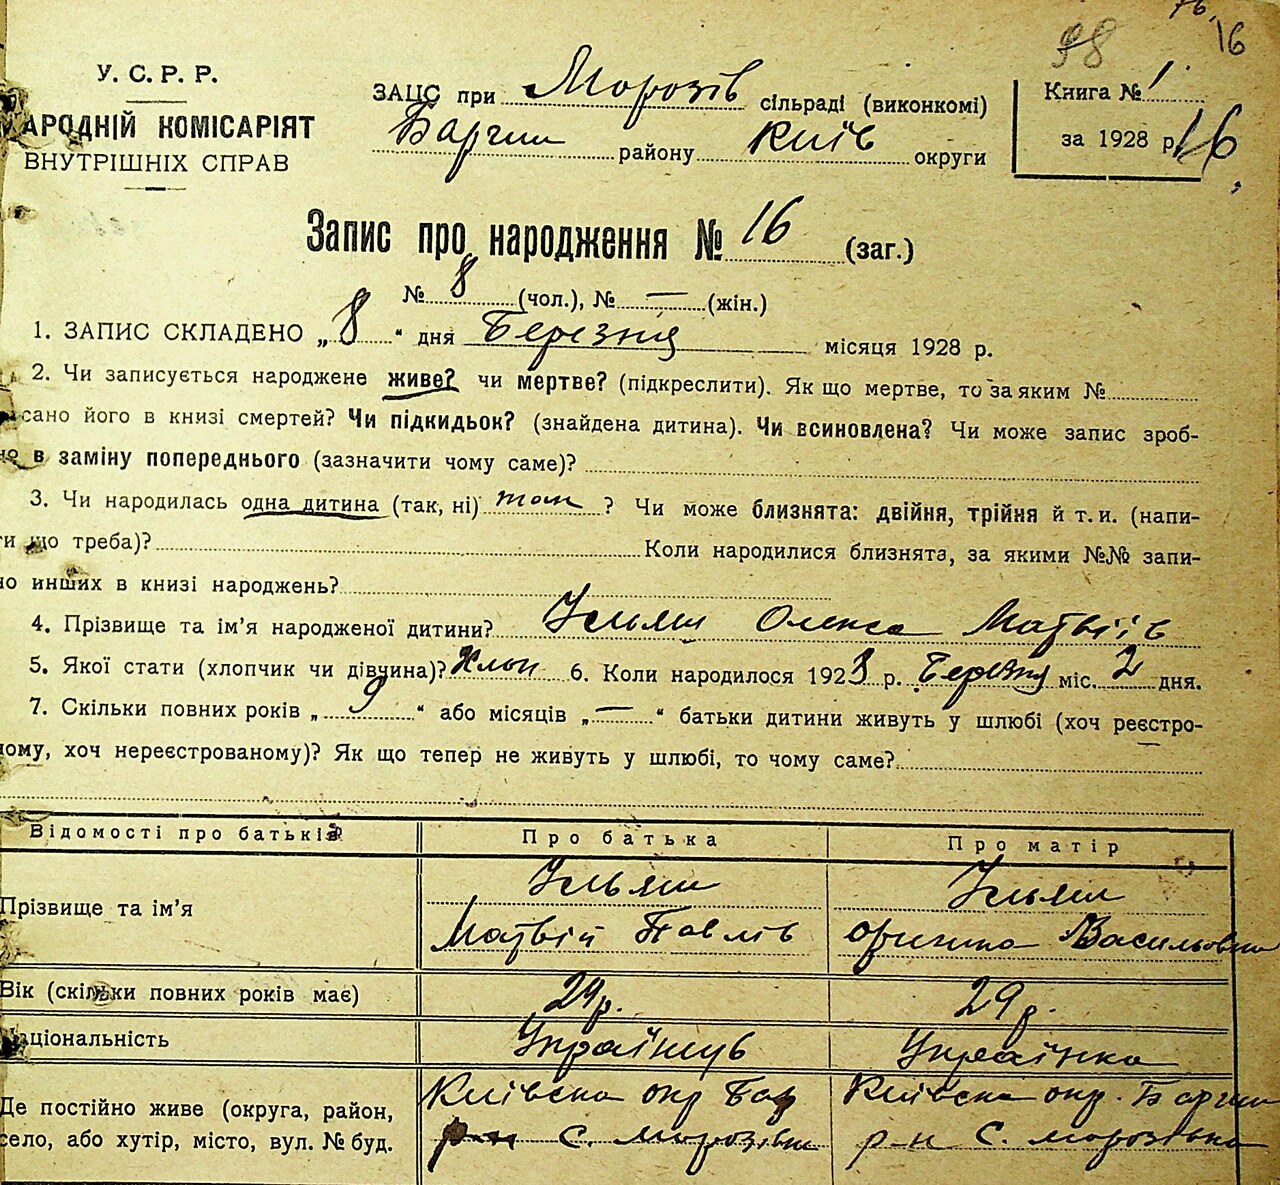 76. 16
98
У. С. Р. Р.
НАРОДНІЙ КОМІСАРІЯТ
ВНУТРІШНІХ СПРАВ
ЗАЦС при Морозів сільраді (виконкомі)
Баришп району Київ округи
Книга № 1
за 1928 р. 16
Запис про народження № 16 (заг.)
№ 8 (чол.), № — (жін.)
1. ЗАПИС СКЛАДЕНО „ 8 “ дня Березня місяця 1928 р.
2. Чи записується народжене живе? чи мертве? (підкреслити). Як що мертве, то за яким №
сано його в книзі смертей? Чи підкидьок? (знайдена дитина). Чи всиновлена? Чи може запис зроб-
но в заміну попереднього (зазначити чому саме)?
3. Чи народилась одна дитина (так, ні) так ? Чи може близнята: двійня, трійня й т. и. (напи-
ти що треба)? Коли народилися близнята, за якими №№ запи-
но инших в книзі народжень?
4. Прізвище та ім’я народженої дитини? Ільяш Олекса Матвіїв
5. Якої стати (хлопчик чи дівчина)? Хлоп 6. Коли народилося 1928 р. Березня міс. 2 дня.
7. Скільки повних років „ 9 “ або місяців „ — “ батьки дитини живуть у шлюбі (хоч реєстро-
ному, хоч нереєстрованому)? Як що тепер не живуть у шлюбі, то чому саме?
Відомості про батьків Про батька Про матір
Прізвище та ім’я
Ільяш Ільяш
Матвій Павлів Оришка Васильовна
Вік (скільки повних років має) 29р. 29р.
Національність Українців Українка
Де постійно живе (округа, район, Київска окр Бар Київска окр. Баришп
село, або хутір, місто, вул. № буд. р-н С. Морозівка р-н С. Морозівка